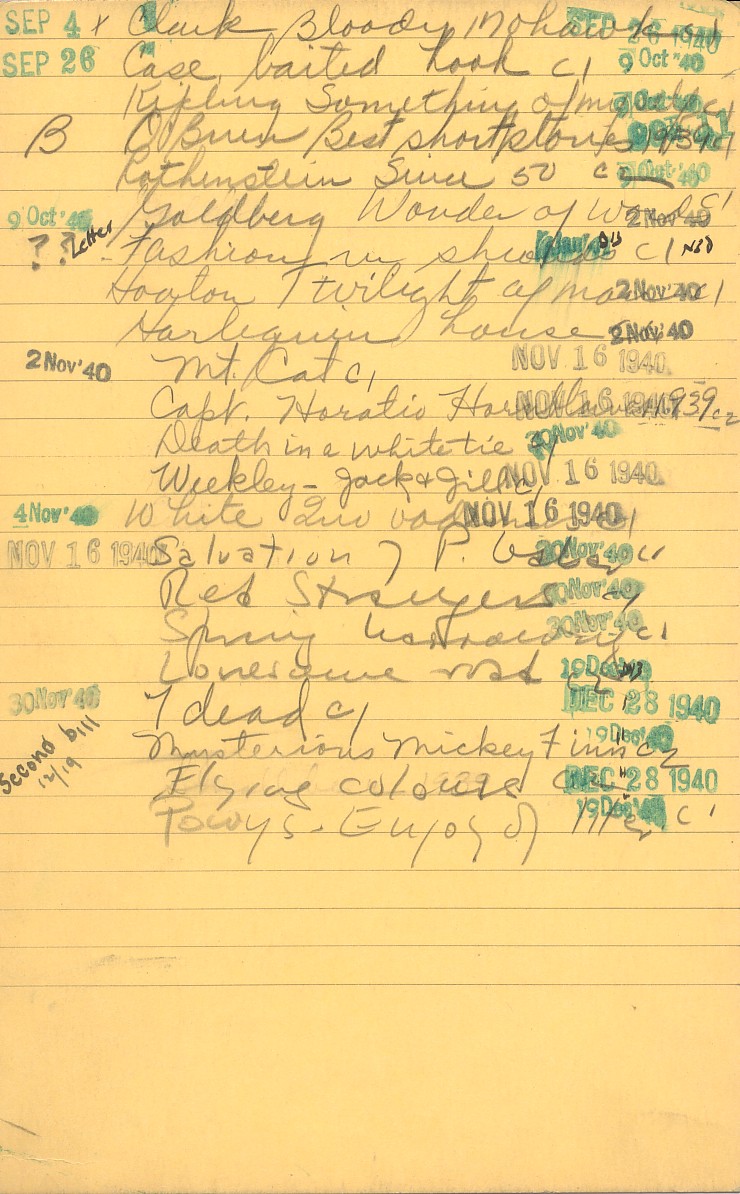 SEP 4 x Clark Bloody Mohawk c1 SEP 26 1940
SEP 26 Case, baited hook c1 9 Oct '40
Kipling Something of myself c1 9 Oct '40
B O'Brien Best short stories 1939 c1
Rothenstein Since 50 c2 9 Oct '40
9 Oct '40 Goldberg Wonder of words c1 2 Nov '40
?? Letter - Fashion in shrouds c1 NBD
Twilight of man c1 2 Nov '40
Harlequin house 2 Nov '40
2 Nov '40 Mt. Cat c1 NOV 16 1940
Capt. Horatio 1939 c2 NOV 16 1940
Death in a white tie c1 30 Nov '40
Weekley - Jack & Jill c1 NOV 16 1940
4 Nov '40 White Quo vadimus c1 NOV 16 1940
NOV 16 1940 Salvation of P. c1 30 Nov '40
Red Strangers c1 30 Nov '40
Spring c1 30 Nov '40
Lonesome road c2 19 Dec '40
30 Nov '40 7 dead c1 DEC 28 1940
Second bill 12/19 Mysterious Mickey Finn c2 19 Dec '40
Flying colours DEC 28 1940
Powys - Enjoy of lit c1 19 Dec '40